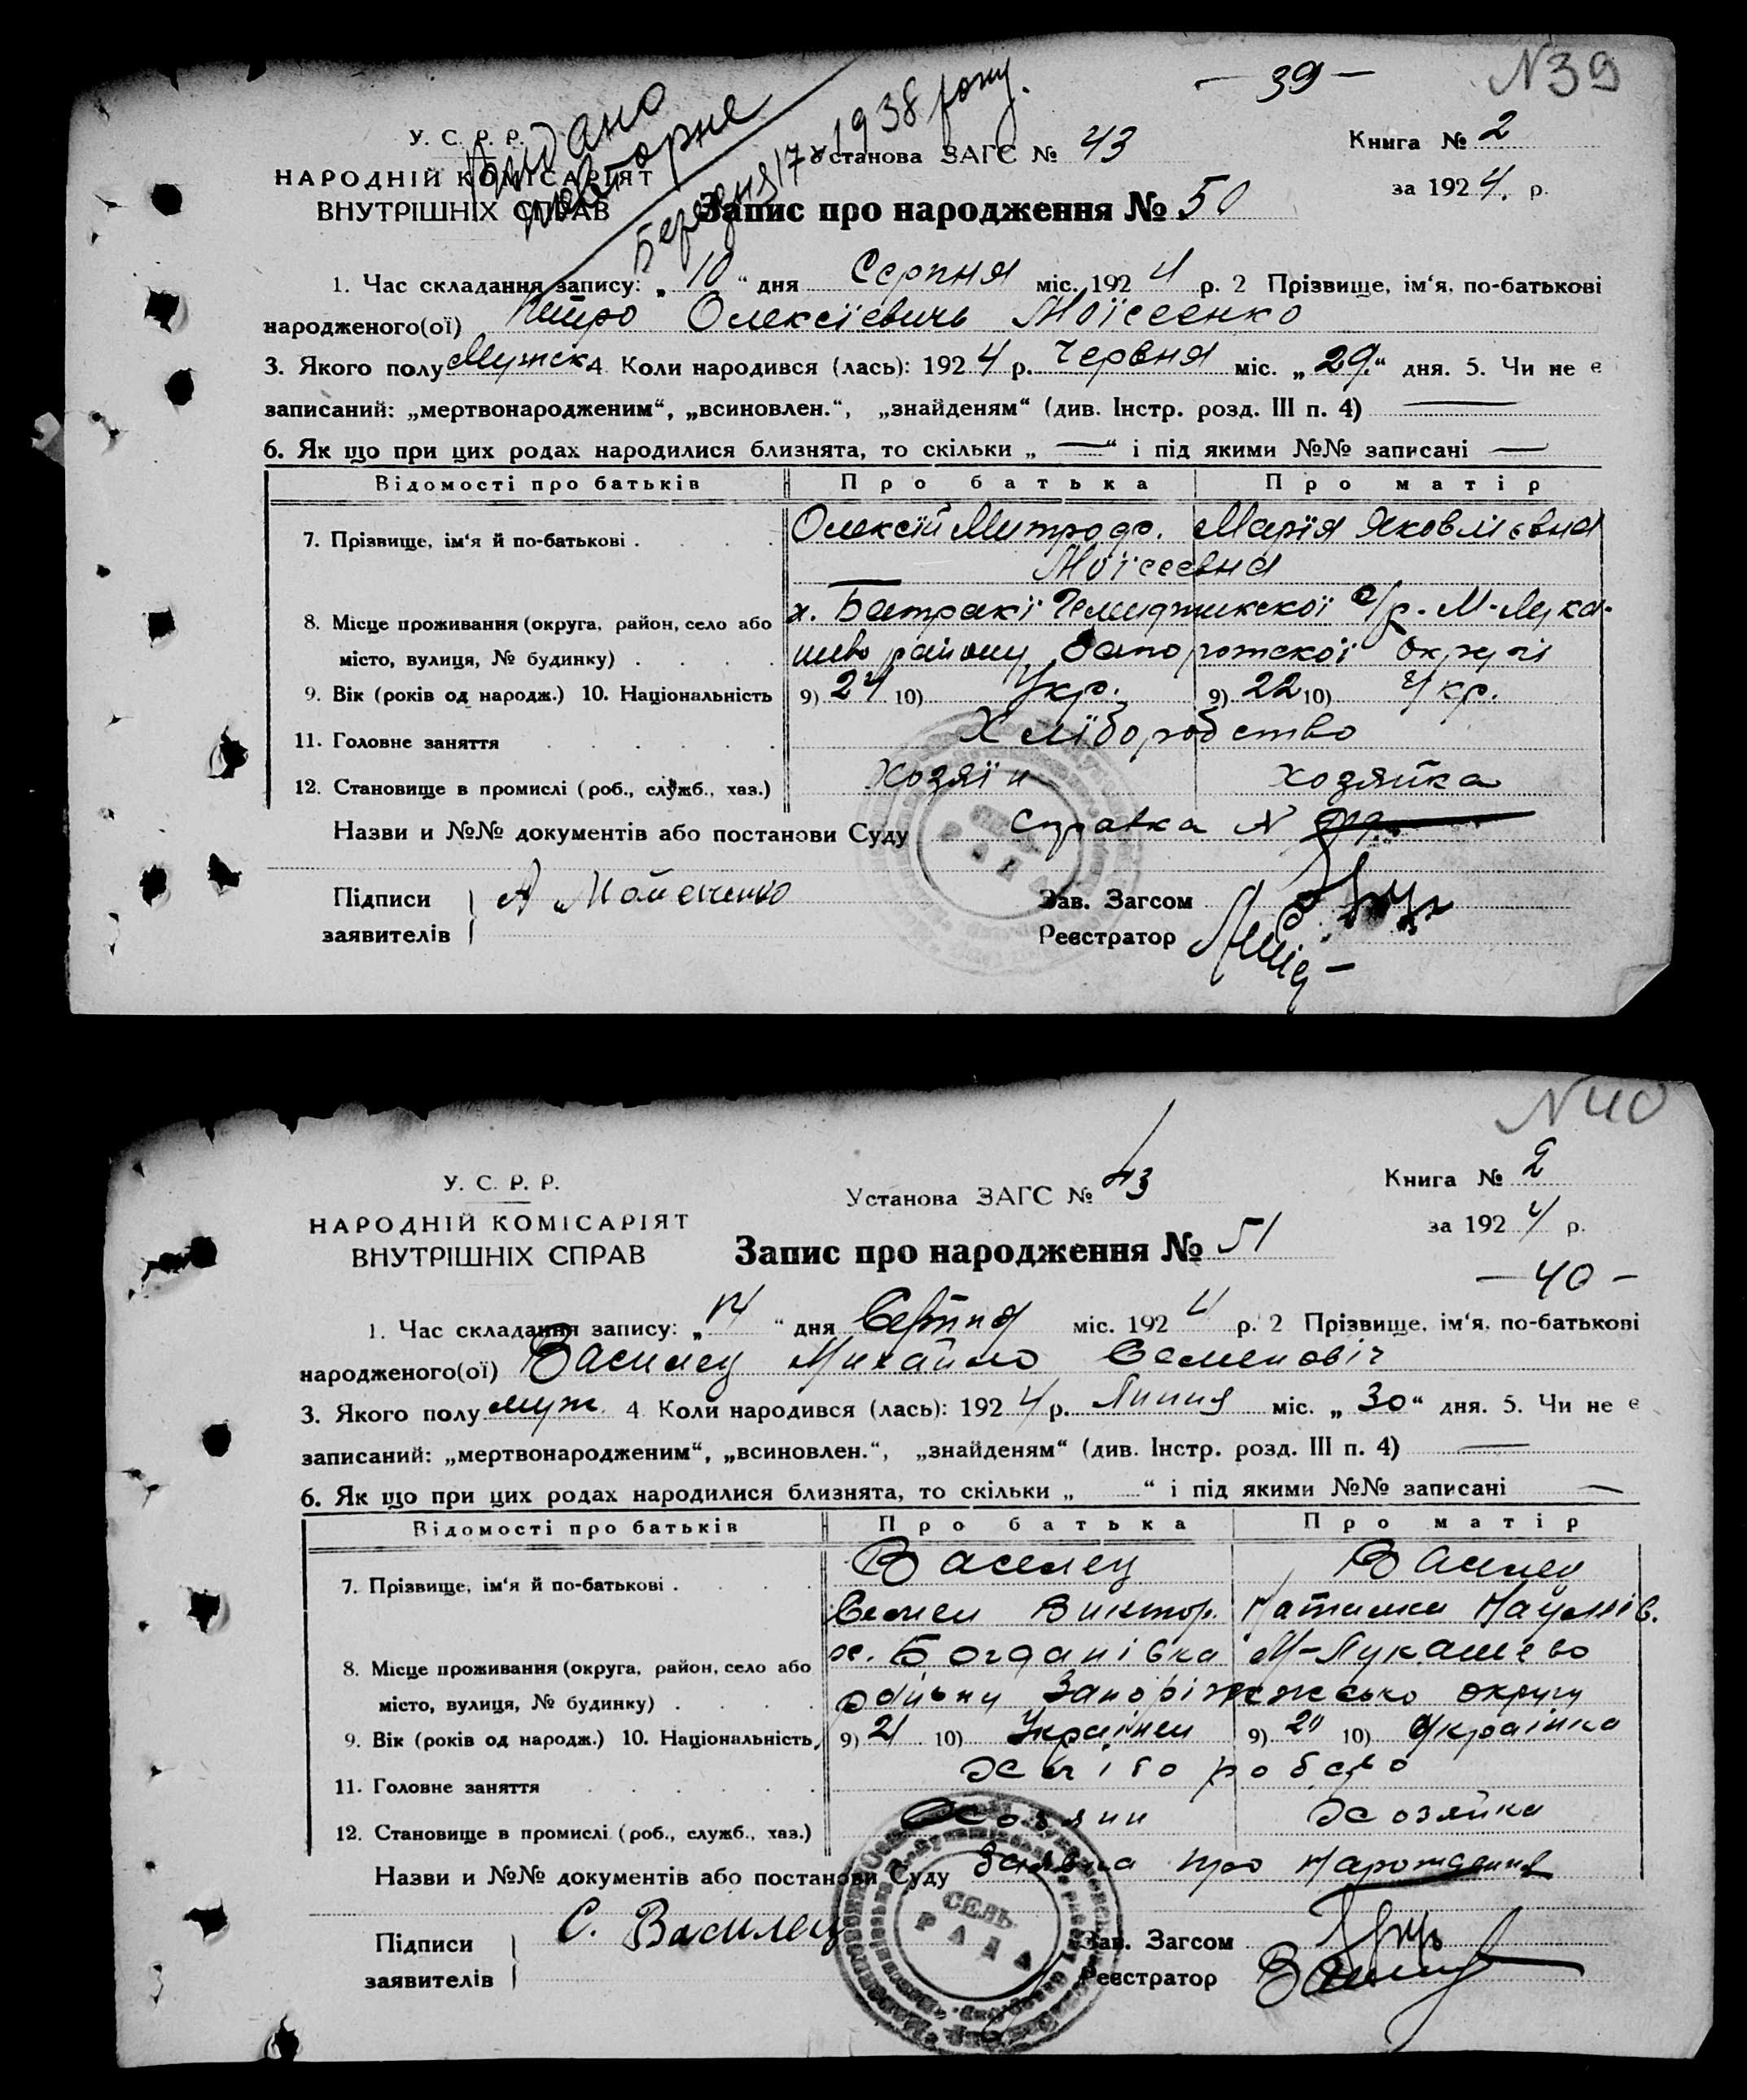 — 39 — N39
Видано
повторне
Березня 17 1938 року.
У. С. Р. Р.
НАРОДНІЙ КОМІСАРІЯТ
ВНУТРІШНІХ СПРАВ
Установа ЗАГС № 43
Книга № 2
за 1924 р.
Запис про народження № 50
1. Час складання запису: „10“ дня Серпня міс. 1924 р. 2 Прізвище, ім‘я, по-батькові
народженого(ої) Петро Олексієвичь Моїсеенко
3. Якого полу Мужск 4 Коли народився (лась): 1924 р. Червня міс. „29“ дня. 5. Чи не є
записаний: „мертвонародженим“, „всиновлен.“, „знайденям“ (див. Інстр. розд. III п. 4) —
6. Як що при цих родах народилися близнята, то скільки „ — “ і під якими №№ записані —
Відомості про батьків Про батька Про матір
7. Прізвище, ім‘я й по-батькові . Олексій Митроф. Марія Яковлієвна
8. Місце проживання (округа, район, село або х. Батракі с/р. М-Лука-
місто, вулиця, № будинку) . шево району Запорожскої Округи
9. Вік (років од народж.) 10. Національність 9) 24 10) Укр. 9) 22 10) Укр.
11. Головне заняття Хліборобство
12. Становище в промислі (роб., служб., хаз.) Хозяїн хозяйка
Назви и №№ документів або постанови Суду Справка N
Підписи А
заявителів
Зав. Загсом
Реєстратор
N40
У. С. Р. Р.
НАРОДНІЙ КОМІСАРІЯТ
ВНУТРІШНІХ СПРАВ
Установа ЗАГС № 43
Книга № 2
за 1924 р.
Запис про народження № 51
— 40 —
1. Час складання запису: „14“ дня Серпня міс. 1924 р. 2 Прізвище, ім‘я, по-батькові
народженого(ої) Василец Михайло Семеновіч
3. Якого полу муж. 4 Коли народився (лась): 1924 р. Липня міс. „30“ дня. 5. Чи не є
записаний: „мертвонародженим“, „всиновлен.“, „знайденям“ (див. Інстр. розд. III п. 4) —
6. Як що при цих родах народилися близнята, то скільки „ “ і під якими №№ записані —
Відомості про батьків Про батька Про матір
Василец Василец
7. Прізвище, ім‘я й по-батькові .
Семен Виктор. Наталка
8. Місце проживання (округа, район, село або х. Богданівка М-Лукашево
місто, вулиця, № будинку) . округи
9. Вік (років од народж.) 10. Національність 9) 21 10) Українец 9) 20 10) Українка
11. Головне заняття
12. Становище в промислі (роб., служб., хаз.) Хозяин Хозяйка
Назви и №№ документів або постанови Суду Заявка про Нарождения
Підписи С. Василец
заявителів
СЕЛЬ
РАДА
Зав. Загсом
Реєстратор